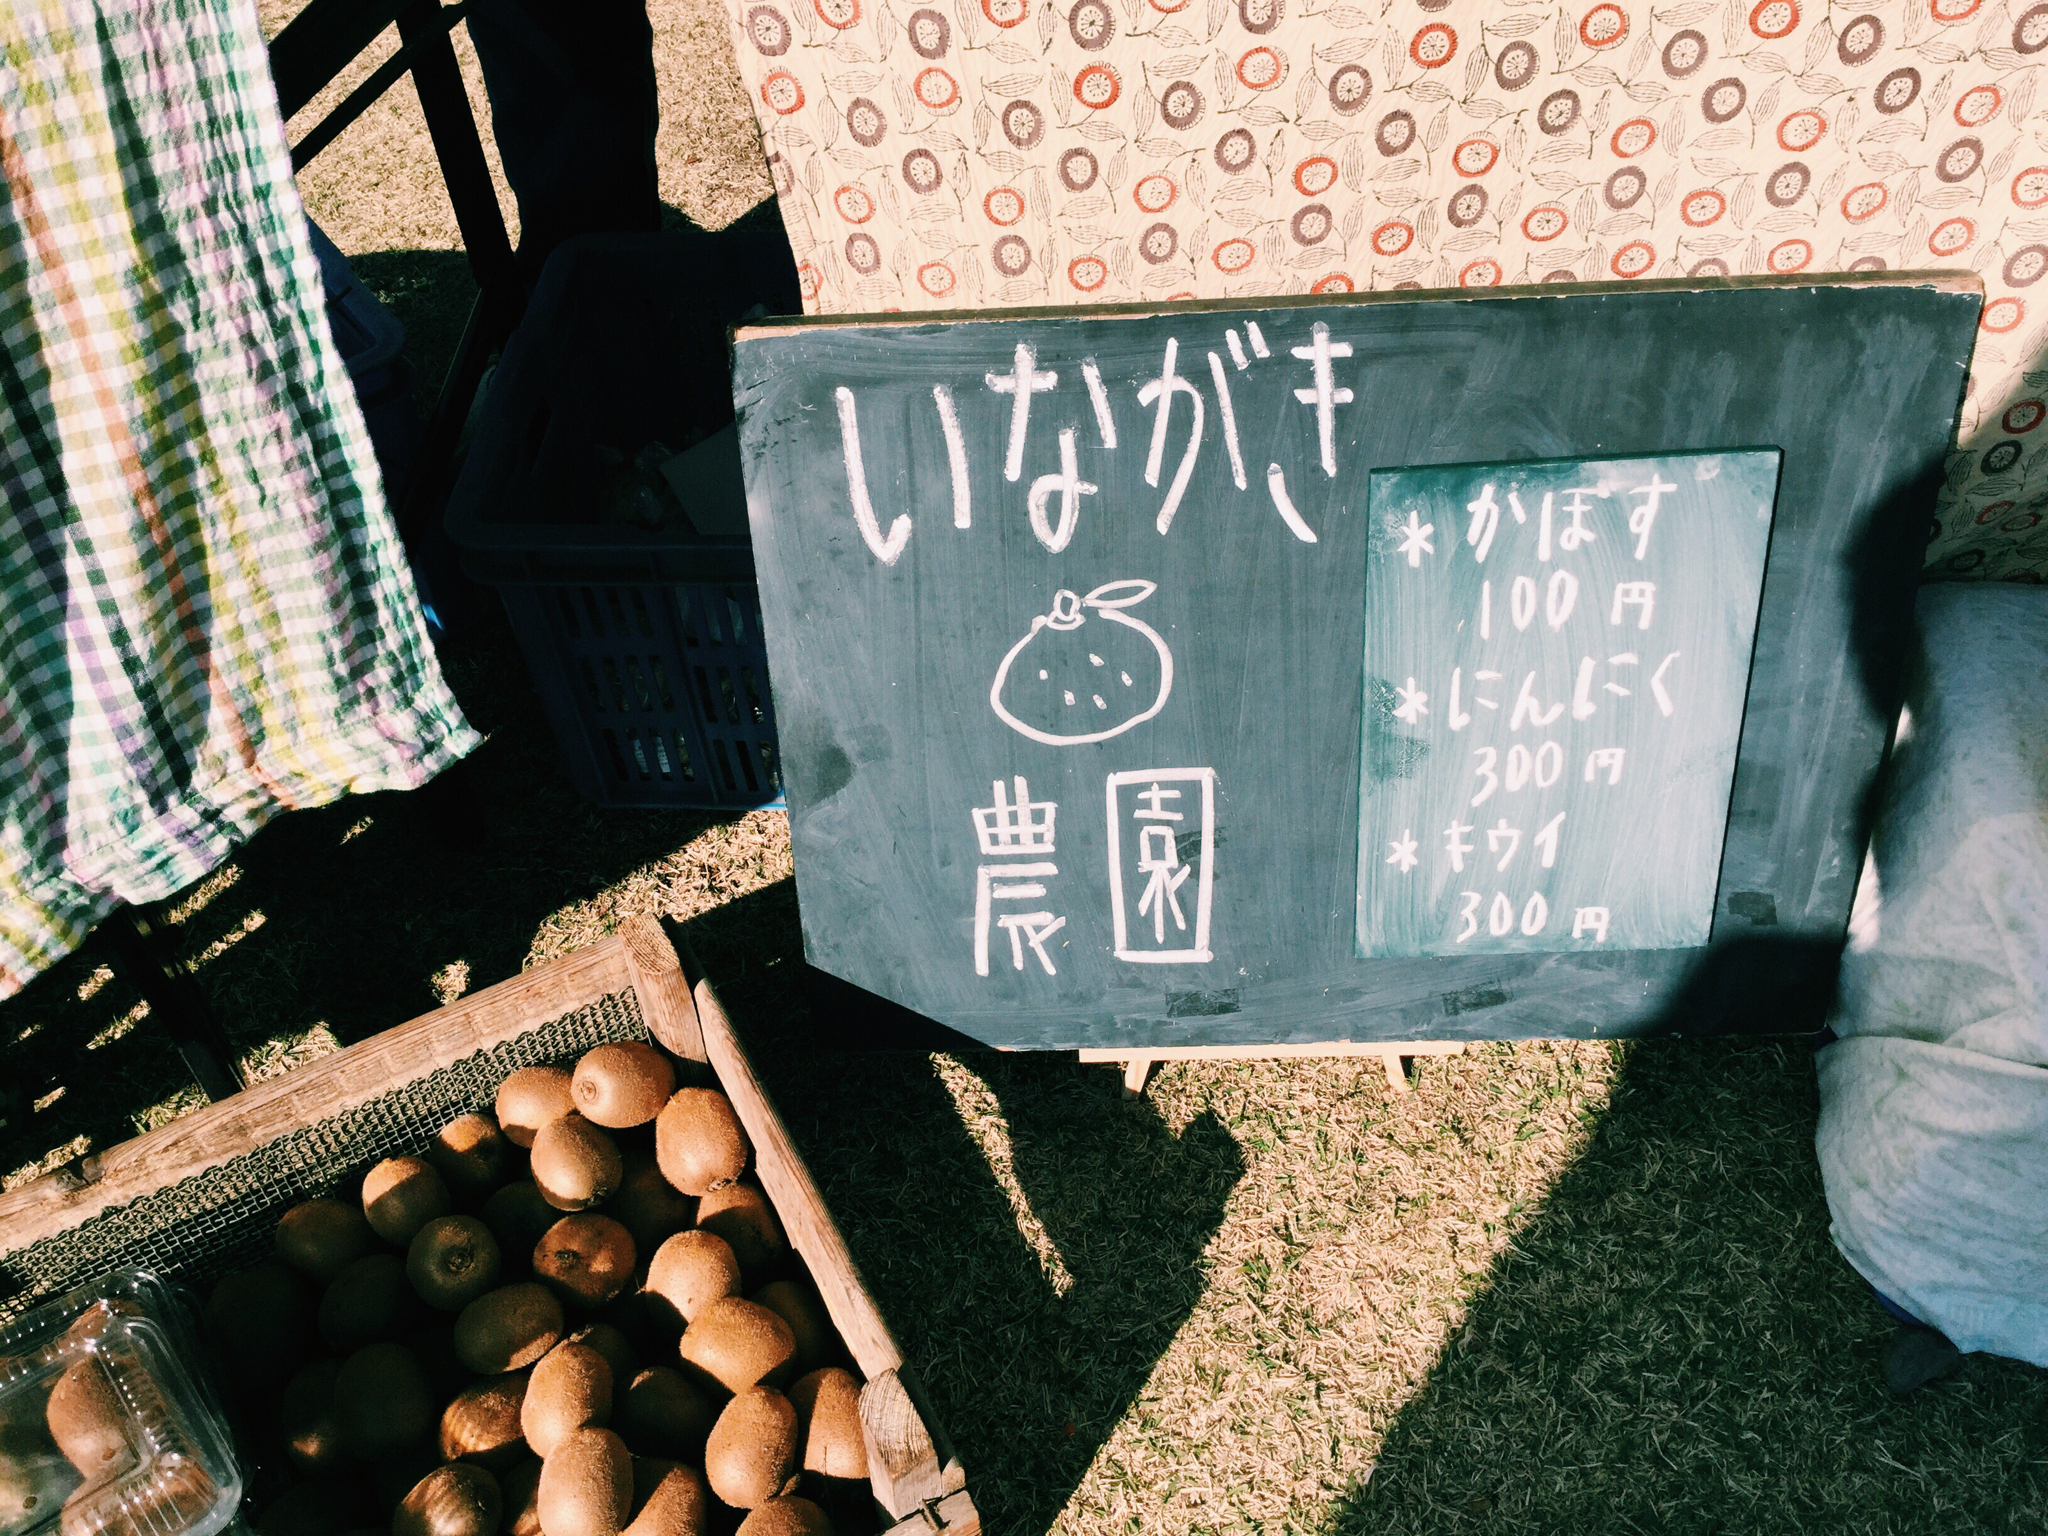 いながき
農園
* かぼす
100円
* にんにく
300円
* キウイ
300円